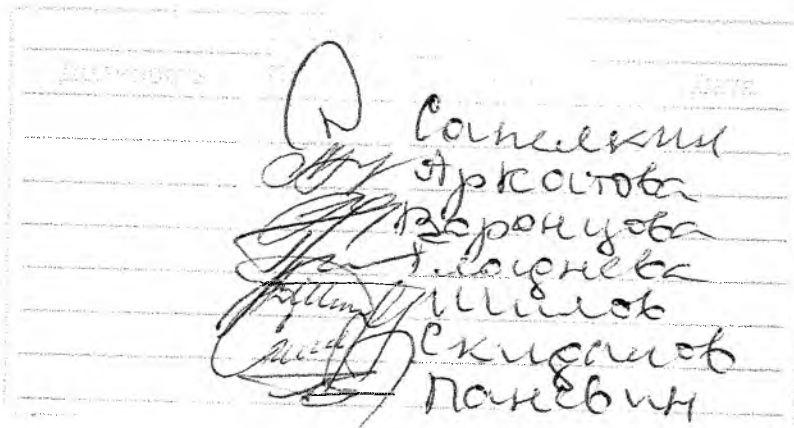 Должность Дата
Сапелкин
Аркатова
Воронцова
Гладнева
Шилов
Скидамов
Паневин